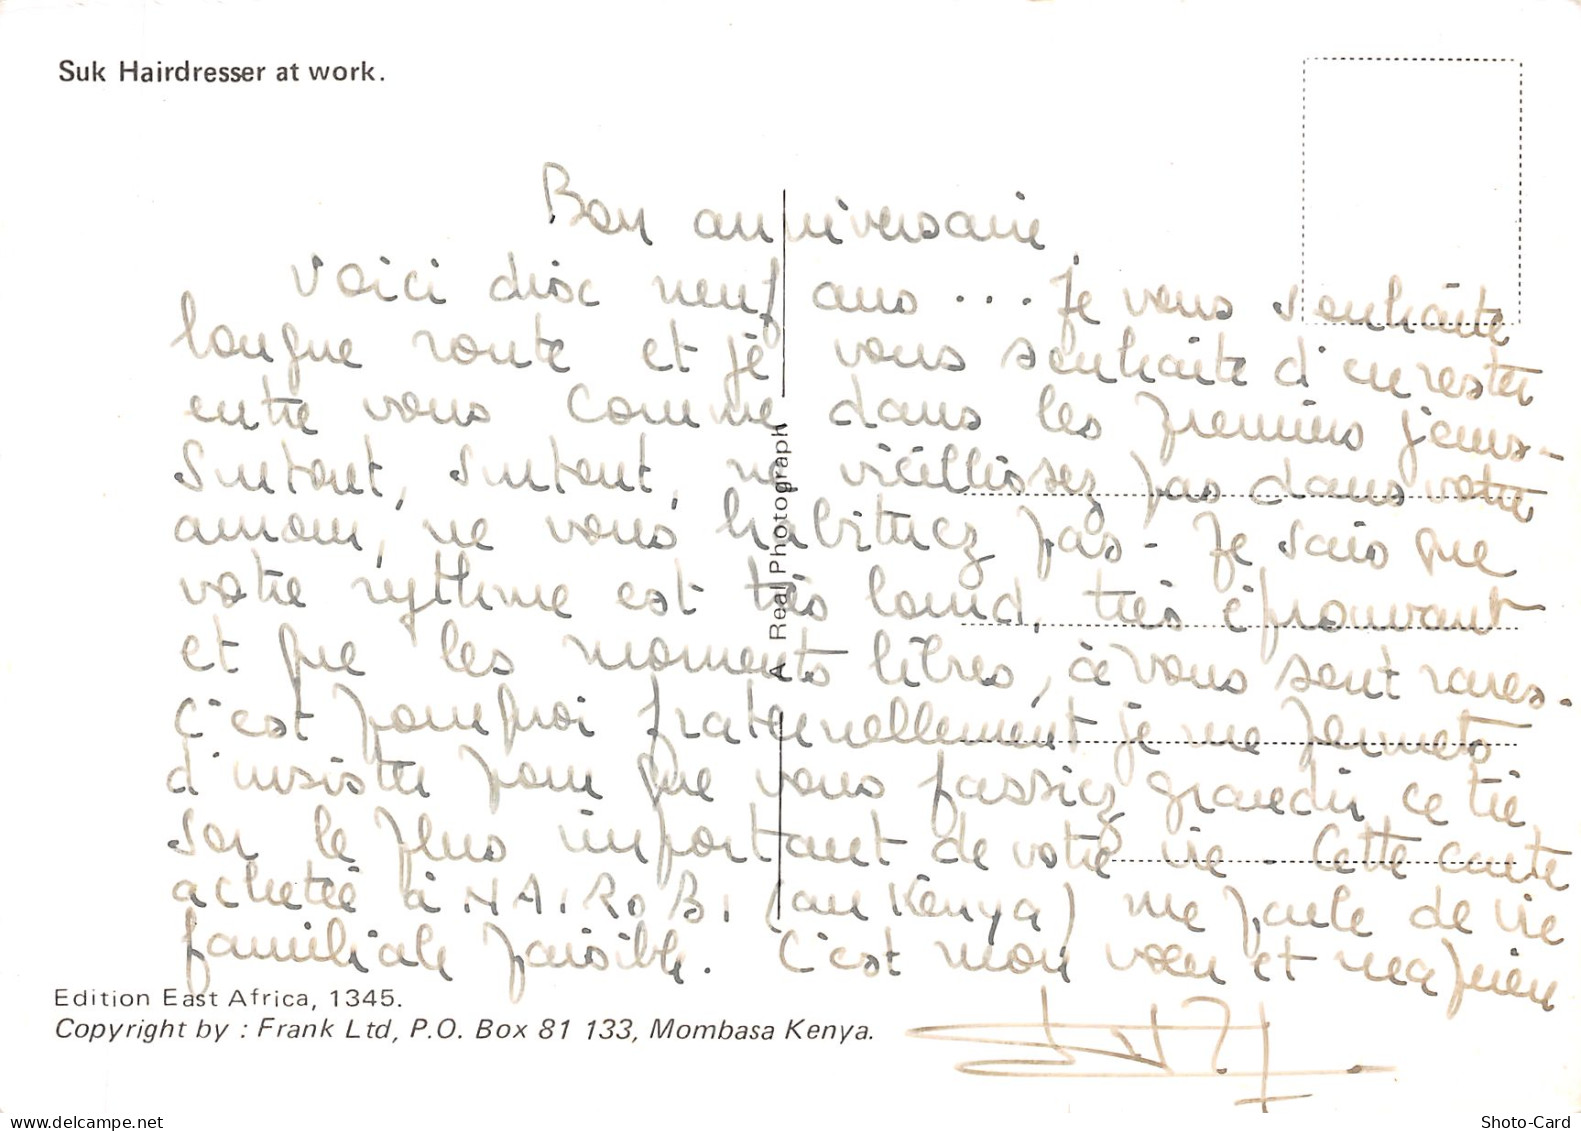 Suk Hairdresser at work.
Bon anniversaire
Voici dix neuf ans ... Je vous souhaite
longue route et je vous souhaite d'en rester
entre vous comme dans les premiers jours -
Surtout, surtout, ne vieillissez pas dans votre
amour, ne vous habituez pas - Je sais que
votre rythme est très lourd, très éprouvant
et que les moments libres, à vous sont rares -
C'est pourquoi fraternellement je me permets
d'insister pour que vous fassiez grandir ce
sor le plus important de votre vie. Cette carte
achetée à NAIROBI (au Kenya) me parle de vie
familiale paisible. C'est mon vœu et ma prière
A Real Photograph
Edition East Africa, 1345.
Copyright by : Frank Ltd, P.O. Box 81 133, Mombasa Kenya.
delcampe.net
Shoto-Card